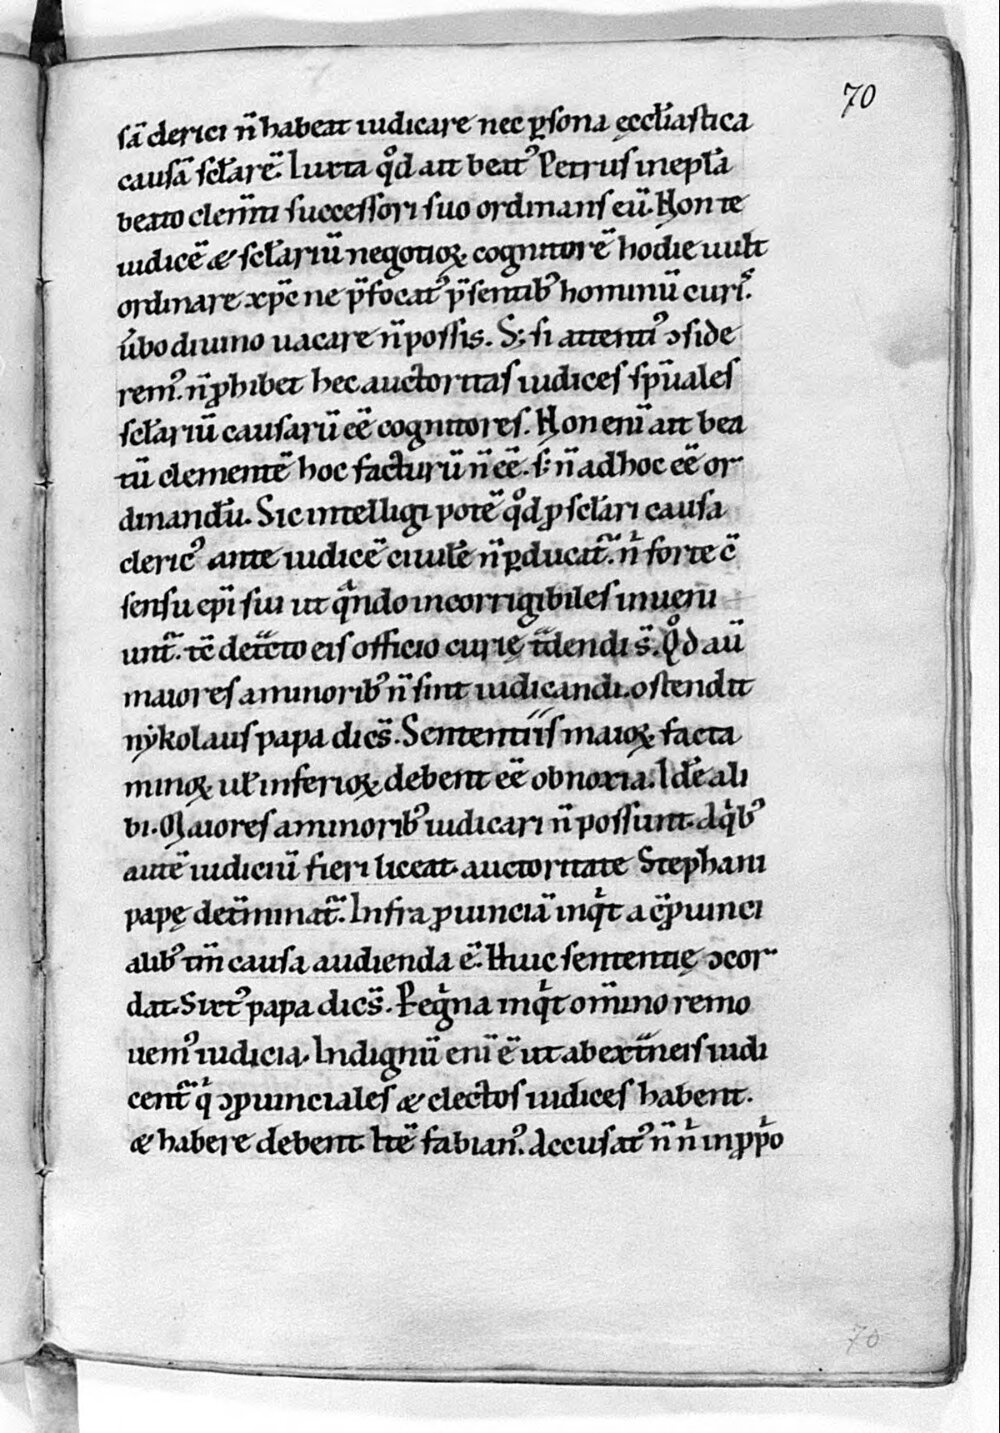 70
sā clerici n̄ habeat iudicare nec ꝑsona ęccƚiastica
causā scƚarē. Iuxta qͦd ait beatꝰ Petrus in epƚa
beato clem̄ti successori suo ordinans eū. Non te
iudicē & scƚariū negotioꝝ cognitorē hodie uult
ordinare xp̄c ne p̄focatꝰ p̄sentibꝰ hominū curis.
ūbo diuino uacare n̄ possis. S; si attentiꝰ ↄside
remꝰ. n̄ ꝓhibet hec auctoritas iudices sp̄uales
scƚariū causarū eē cognitores. Non enī ait bea
tū clementē hoc facturū n̄ eē. s; n̄ ad hoc eē or
dinandū. Sic intelligi potē qͦd ꝓ scƚari causa
clericꝰ ante iudicē ciuilē n̄ ꝓducat᷑. n̄ forte c̄
sensu ep̄i sui ut qͣndo incorrigibiles inueni
unt᷑. tē det̄cto eis officio curię t̄dendi s̄. Qͦd aū
maiores a minoribꝰ n̄ sint iudicandi. ostendit
nẏkolaus papa dic̄s. Sententiis maioꝝ facta
minoꝝ uƚ inferioꝝ debent eē obnoxia. Idē ali
bi. Maiores a minoribꝰ iudicari n̄ possunt. A qͥbꝰ
autē iudiciū fieri liceat. auctoritate Stephani
papę det̄minat᷑. Infra ꝓuinciā inqͥt a c̄ꝓuinci
alibꝰ tm̄ causa audienda ē. Huic sententię ↄcor
dat. Sixtꝰ papa dic̄s. Peg̍na inqͥt om̄ino remo
uemꝰ iudicia. Indignū enī ē ut ab ext̄neis iudi
cent᷑ qͥ ↄꝓuinciales & electos iudices habent.
& habere debent. Itē fabianꝰ. Accusatꝰ n̄ nͥ in ꝓpͥo
70